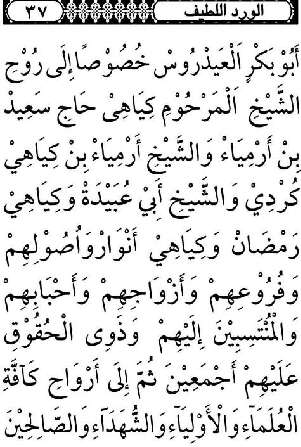 الورد اللطيف
٣٧
أَبُو بَكْرٍ الْعَيْدَرُوسْ خُصُوْصًا إِلَى رُوْحِ
الشَّيْخِ الْمَرْحُوْمِ كِيَاهِيْ حَاجِ سَعِيْدْ
بِنْ أَرْمِيَاءْ وَالشَّيْخِ أَرْمِيَاءْ بِنْ كِيَاهِيْ
كُرْدِيْ وَالشَّيْخِ أَبِيْ عُبَيْدَةْ وَكِيَاهِيْ
رَمْضَانْ وَكِيَاهِيْ أَنْوَارْ وَاُصُوْلِهِمْ
وَفُرُوْعِهِمْ وَأَزْوَاجِهِمْ وَأَحْبَابِهِمْ
وَالْمُنْتَسِبِيْنَ إِلَيْهِمْ وَذَوِى الْحُقُوْقِ
عَلَيْهِمْ أَجْمَعِيْنَ ثُمَّ إِلَى أَرْوَاحِ كَآفَّةِ
الْعُلَمَآءِ وَالْأَوْلِيَآءِ وَالشُّهَدَآءِ وَالصَّالِحِيْنَ